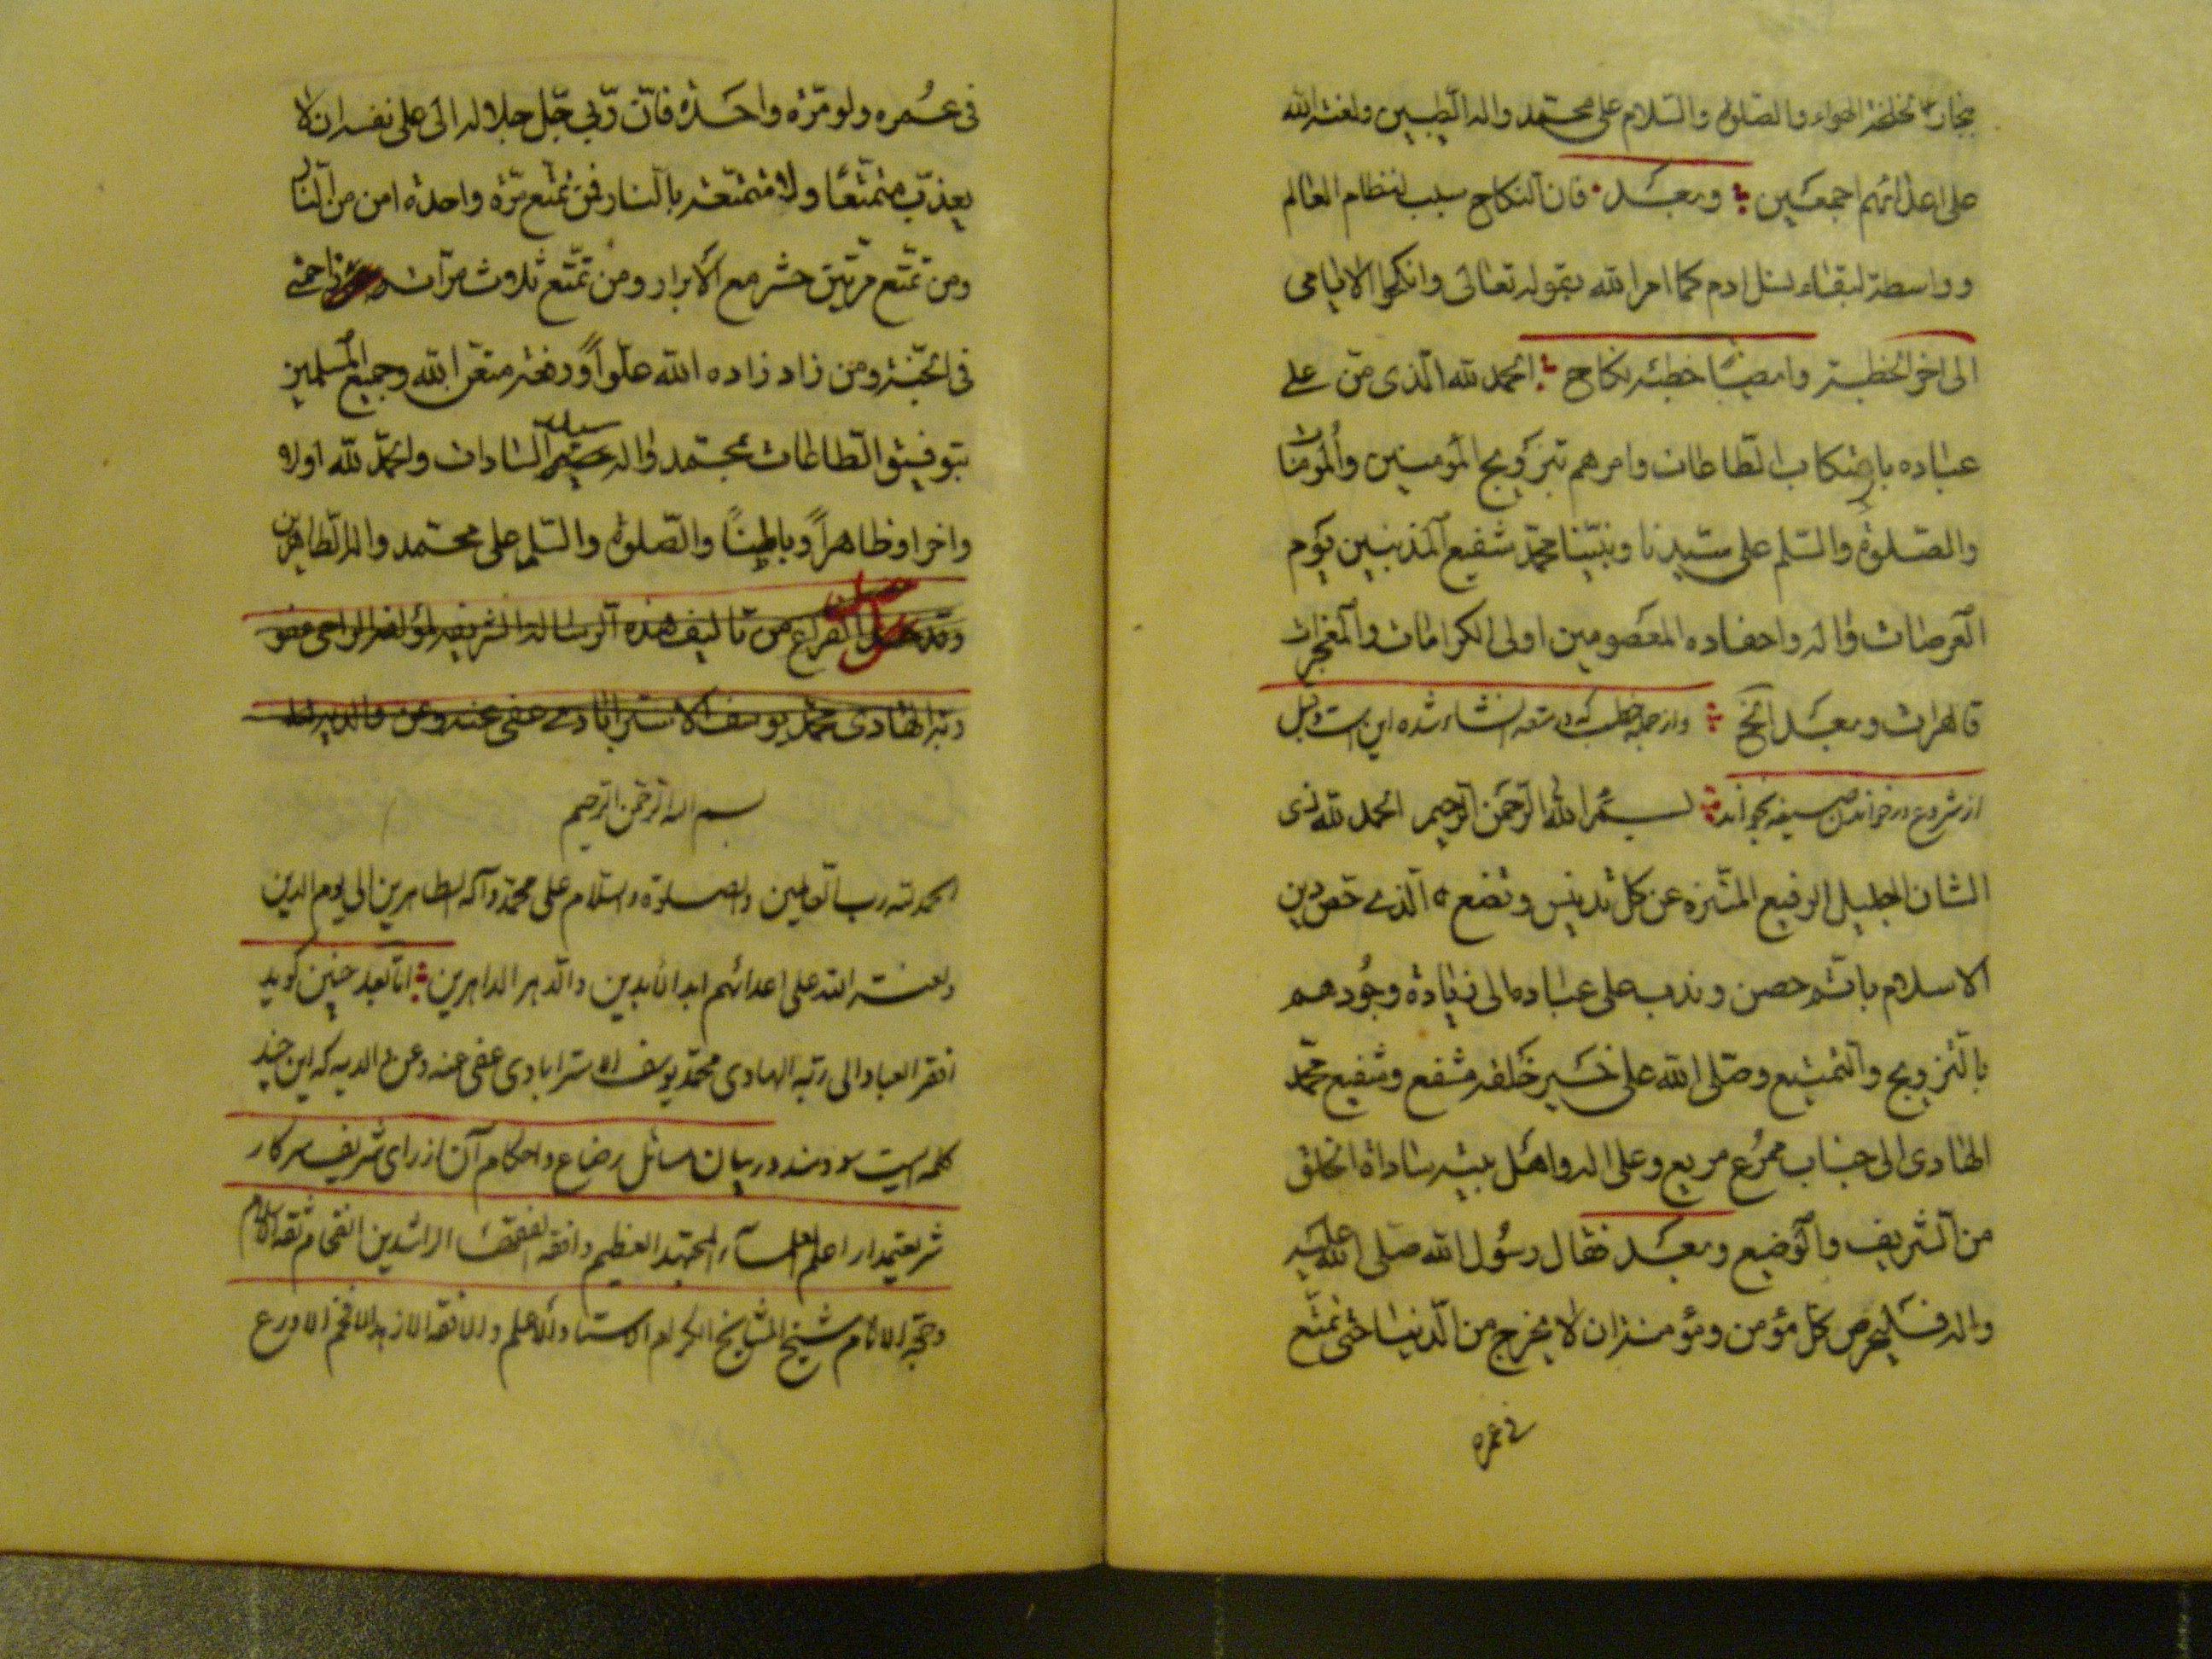 والصلوة والسلام على محمد واله الطيبين ولعنة الله
على اعدائهم اجمعين وبعد فان النكاح سبب لنظام العالم
وواسطة لبقاء نسل ادم كما امر الله بقوله تعالى وانكحوا الايامى
الى اخر الخطبة وايضا خطبه نكاح الحمد لله الذى من على
عباده بارتكاب الطاعات وامرهم بتزويج المؤمنين والمؤمنات
والصلوة والسلم على سيدنا ونبينا محمد شفيع المذنبين يوم
العرصات واله واحفاده المعصومين اولى الكرامات والمعجزات
وبعد الخ واز جمله خطب كه در متعه انشاء شده اين است قبل
از شروع در خواندن صيغه بخواند بسم الله الرحمن الرحيم الحمد لله ذى
الشان الجليل الرفيع المنزه عن كل تدنيس الذى خص دين
الاسلام باتم حصن وندب على عباده الى زيادة وجودهم
بالتزويج والتمتيع وصلى الله على خير خلقه مشفع وشفيع محمد
الهادى الى جناب ممرع مريع وعلى اله واهل بيته ساداة الخلق
من الشريف والوضيع وبعد فقال رسول الله صلى الله عليه
واله فليحرص كل مؤمن ومؤمنة ان لا يخرج من الدنيا حتى تمتع
فى عمره
فى عمره ولو مرة واحدة فان ربى جل جلاله الى على نفسه ان لا
يعذب متمتعا ولا متمتعة بالنار فمن تمتع مرة واحدة امن من النار
ومن تمتع مرتين حشر مع الابرار ومن تمتع ثلاث مرات
فى الجنة ومن زاد زاده الله علوا ورفعة الله وجميع المسلمين
بتوفيق الطاعات بمحمد واله السادات والحمد لله اولا
واخرا وظاهرا وباطنا والصلوة والسلم على محمد واله الطاهرين
وقد حصل الفراغ من تاليف هذه الرسالة الشريفة لمؤلفه الراجى عفو
ربه الهادى محمد يوسف الاسترابادى عفى عنه وعن والديه
بسم الله الرحمن الرحيم
الحمد لله رب العالمين والصلوة والسلام على محمد وآله الطاهرين الى يوم الدين
ولعنة الله على اعدائهم ابد الابدين ودهر الداهرين اما بعد چنين گويد
افقر العباد الى ربه الهادى محمد يوسف الاسترابادى عفى عنه وعن والديه كه اين چند
كلمه ايست سودمند در بيان مسائل رضاع واحكام آن از راى شريف سركار
شريعتمدار اعلم العلماء المجتهد العظيم وافقه الفقهاء الراشدين الفخام ثقة الاسلام
وحجة الانام شيخ المشايخ الكرام الاستاد الاعلم والافقه الازهد الافخم الاورع